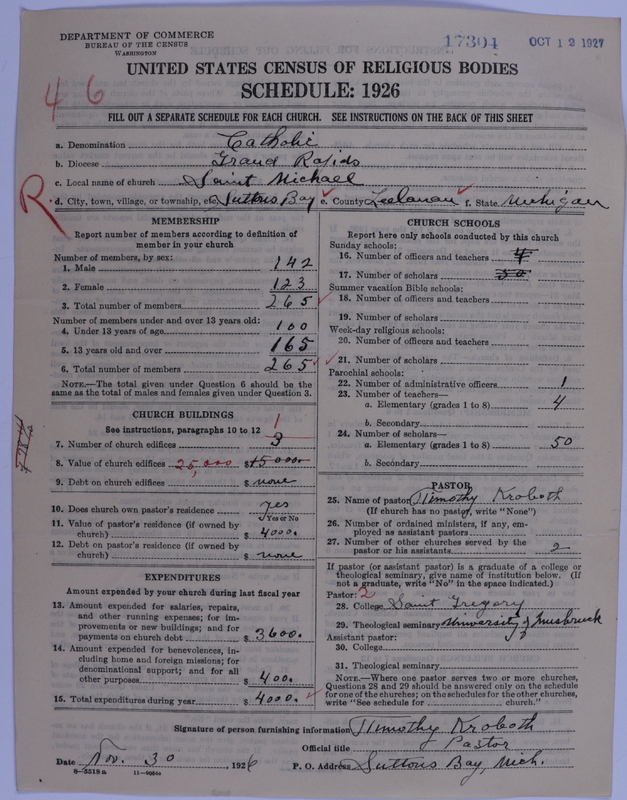 DEPARTMENT OF COMMERCE
BUREAU OF THE CENSUS
WASHINGTON
17301 OCT 12 1927
UNITED STATES CENSUS OF RELIGIOUS BODIES
SCHEDULE: 1926
46
FILL OUT A SEPARATE SCHEDULE FOR EACH CHURCH. SEE INSTRUCTIONS ON THE BACK OF THIS SHEET
a. Denomination Catholic
b. Diocese Grand Rapids
c. Local name of church Saint Michael
R
d. City, town, village, or township, etc. Suttons Bay e. County Leelanau f. State Michigan
MEMBERSHIP
Report number of members according to definition of
member in your church
Number of members, by sex:
1. Male 142
2. Female 123
3. Total number of members 265
Number of members under and over 13 years old:
4. Under 13 years of age 100
5. 13 years old and over 165
6. Total number of members 265
NOTE.—The total given under Question 6 should be the
same as the total of males and females given under Question 3.
CHURCH BUILDINGS
See instructions, paragraphs 10 to 12
1
7. Number of church edifices 3
8. Value of church edifices 25,000 $ 15000
9. Debt on church edifices $ none
10. Does church own pastor's residence yes
Yes or No
11. Value of pastor's residence (if owned by
church) $ 4000.
12. Debt on pastor's residence (if owned by
church) $ none
EXPENDITURES
Amount expended by your church during last fiscal year
13. Amount expended for salaries, repairs,
and other running expenses; for im-
provements or new buildings; and for
payments on church debt $ 3600.
14. Amount expended for benevolences, in-
cluding home and foreign missions; for
denominational support; and for all
other purposes $ 400.
15. Total expenditures during year $ 4000.
CHURCH SCHOOLS
Report here only schools conducted by this church
Sunday schools:
16. Number of officers and teachers 4
17. Number of scholars 50
Summer vacation Bible schools:
18. Number of officers and teachers
19. Number of scholars
Week-day religious schools:
20. Number of officers and teachers
21. Number of scholars
Parochial schools:
22. Number of administrative officers 1
23. Number of teachers—
a. Elementary (grades 1 to 8) 4
b. Secondary
24. Number of scholars—
a. Elementary (grades 1 to 8) 50
b. Secondary
PASTOR
25. Name of pastor Timothy Kroboth
(If church has no pastor, write "None")
26. Number of ordained ministers, if any, em-
ployed as assistant pastors
27. Number of other churches served by the
pastor or his assistants 2
If pastor (or assistant pastor) is a graduate of a college or
theological seminary, give name of institution below. (If
not a graduate, write "No" in the space indicated.)
Pastor: 2
28. College Saint Gregory
29. Theological seminary University of Innsbruck
Assistant pastor:
30. College
31. Theological seminary
NOTE.—Where one pastor serves two or more churches,
Questions 28 and 29 should be answered only on the schedule
for one of the churches; on the schedules for the other churches,
write "See schedule for church."
Signature of person furnishing information Timothy Kroboth
Official title Pastor
Date Nov. 30, 1926 P. O. Address Suttons Bay, Mich.
8-5518a 11-90844